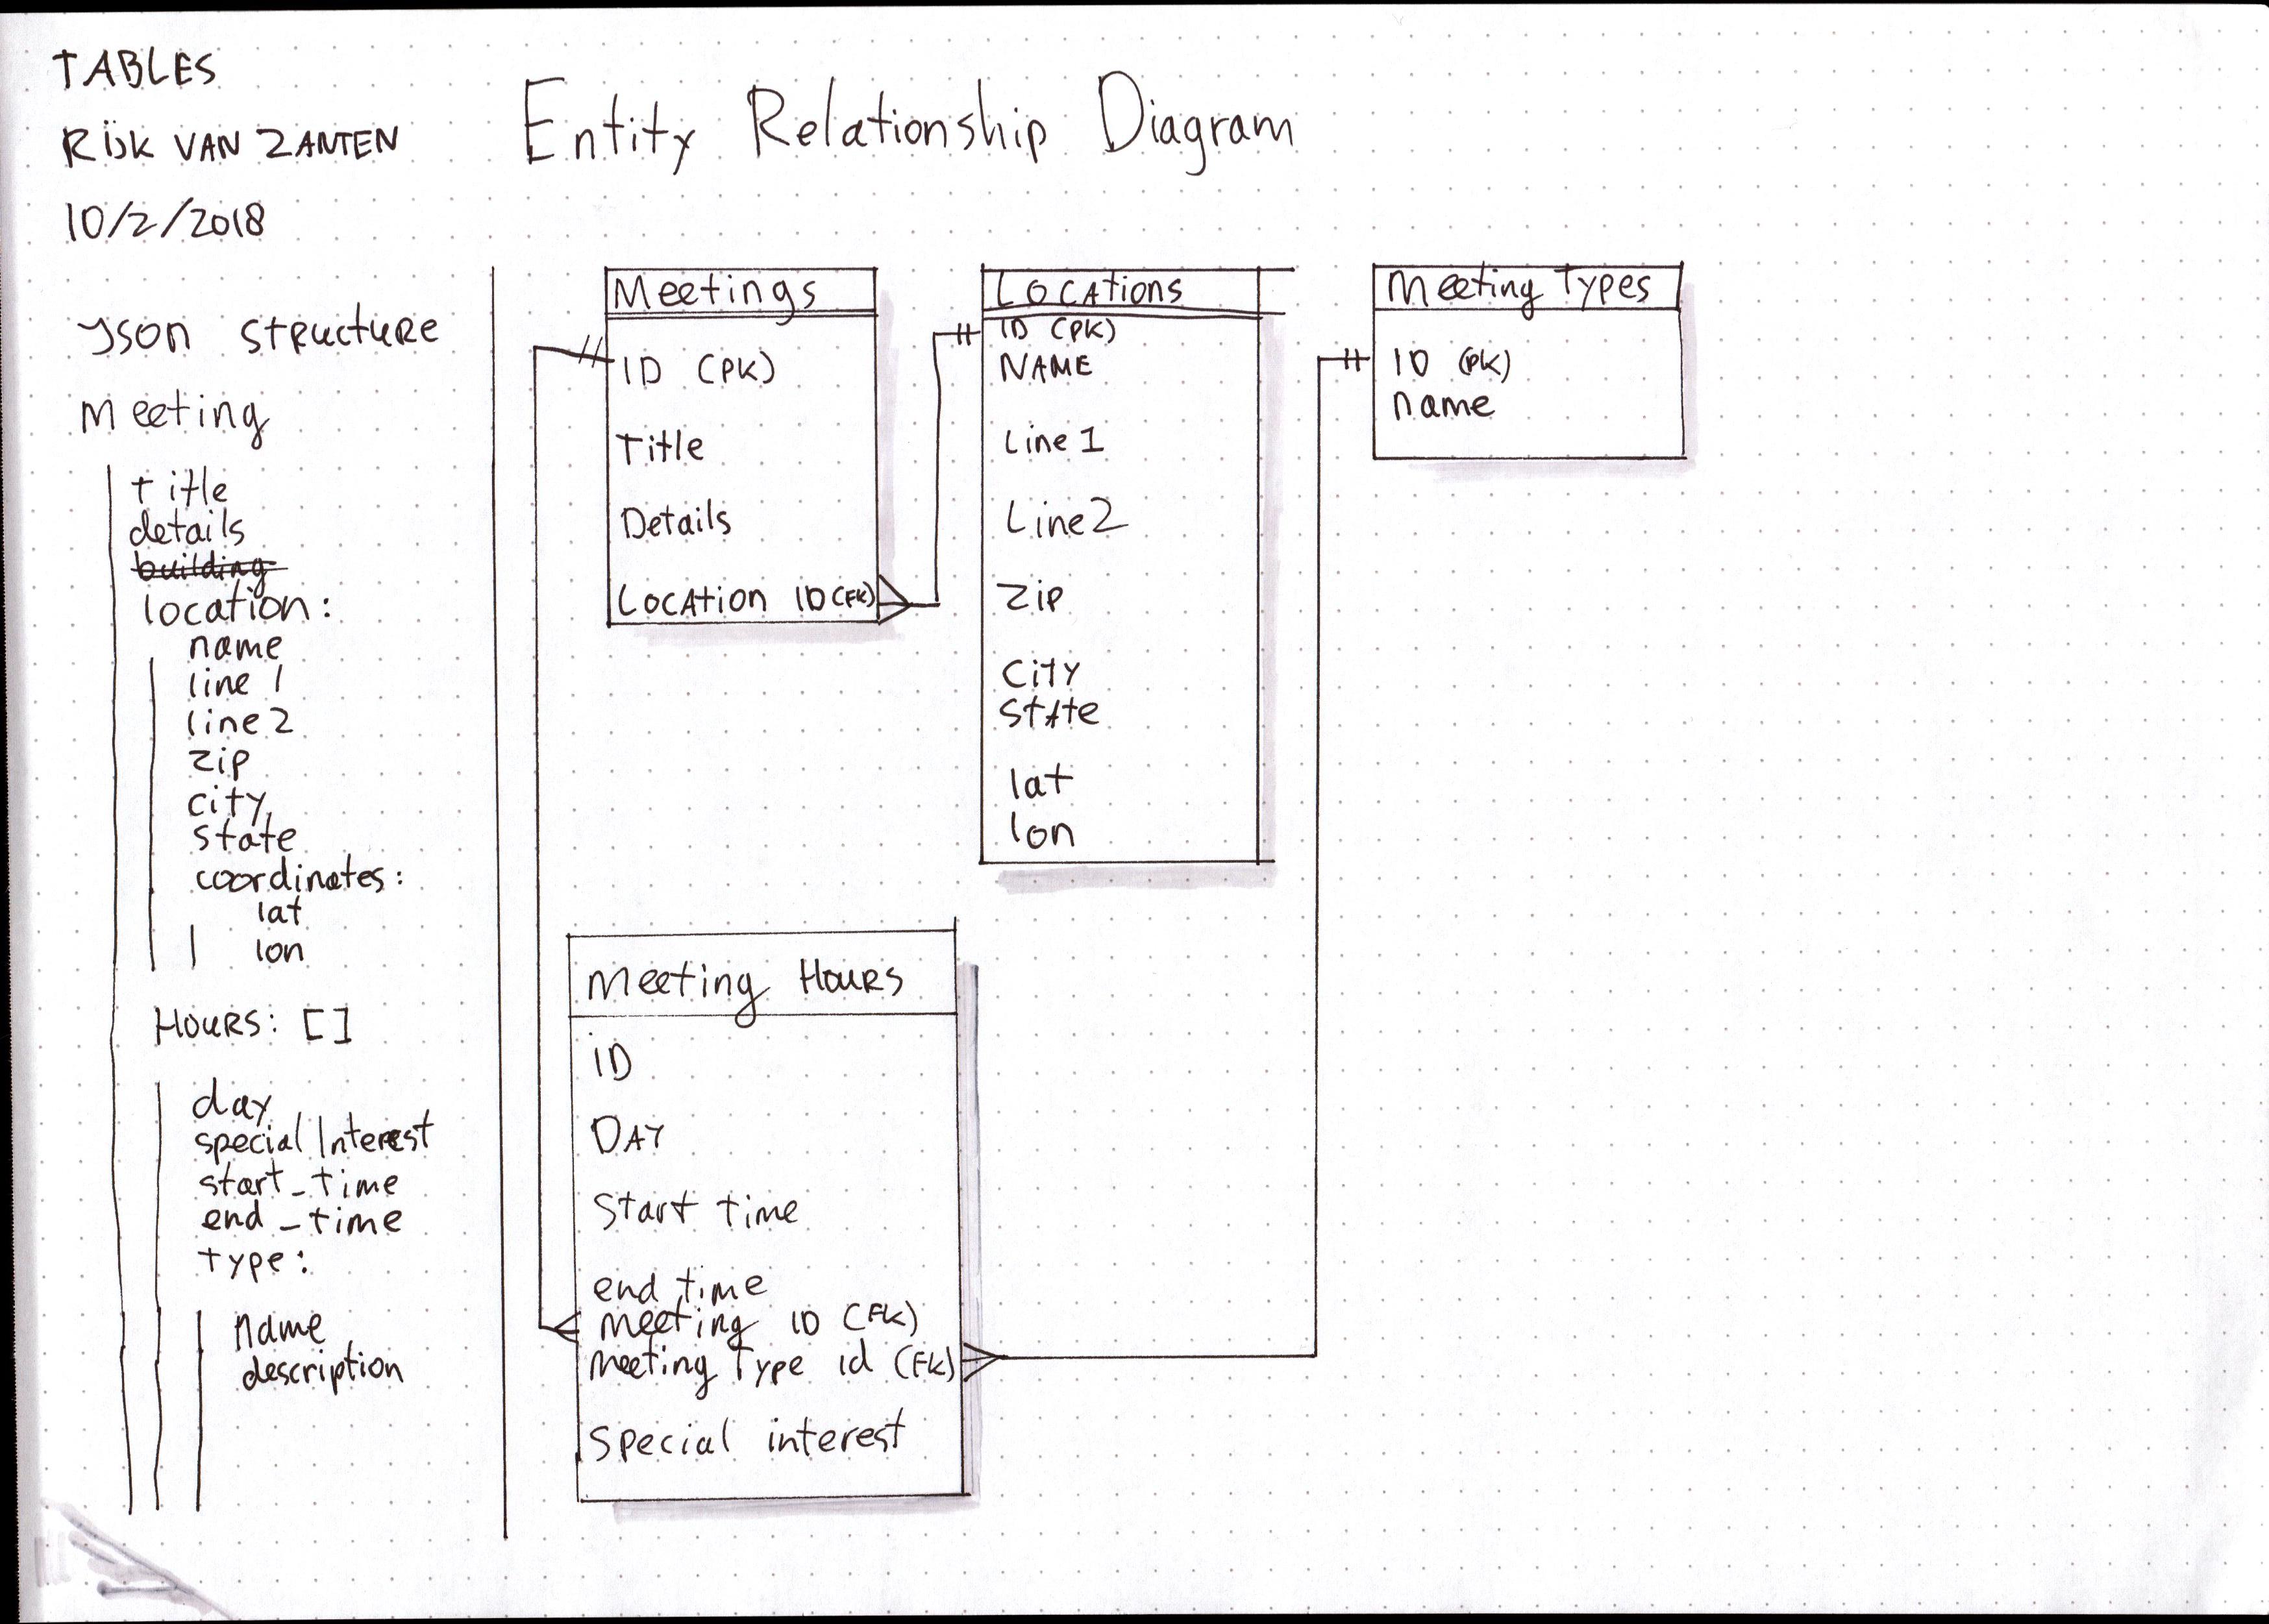 TABLES
RIJK VAN ZANTEN
10/2/2018
Entity Relationship Diagram
JSON STRUCTURE
Meeting
title
details
building
location:
name
line 1
line 2
zip
city
state
coordinates:
lat
lon
HOURS: []
day
specialInterest
start_time
end_time
type:
name
description
Meetings
ID (PK)
Title
Details
LOCATION ID (FK)
LOCATIONS
ID (PK)
NAME
Line 1
Line 2
Zip
CITY
STATE
lat
lon
Meeting Types
ID (PK)
name
Meeting HOURS
ID
DAY
Start time
end time
Meeting ID (FK)
Meeting Type id (FK)
Special interest